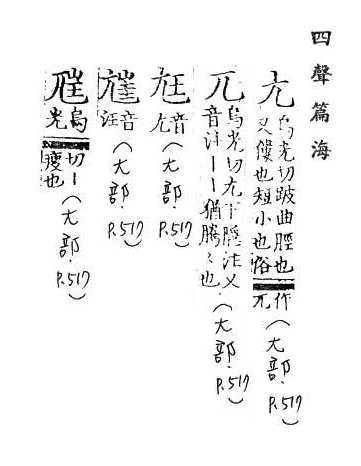 四聲篇海
尢 烏光切跛曲脛也作
又僂也短小也俗兀(尢部.P.517)
兀 烏光切尢下脛注又
音注丨丨猶騰々也.(尢部.P.517)
尪 音尢(尢部.P.517)
音汪(尢部.P.517)
烏光切丨瘦也(尢部.P.517)